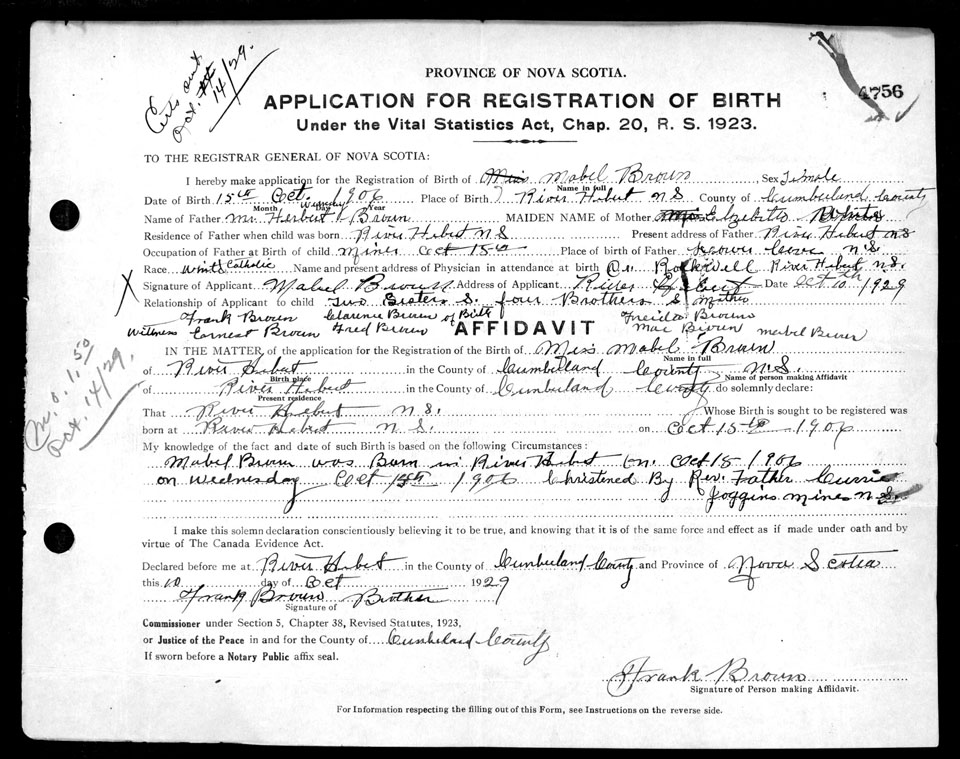 Certs sent
Oct. 14/29.
4756
PROVINCE OF NOVA SCOTIA.
APPLICATION FOR REGISTRATION OF BIRTH
Under the Vital Statistics Act, Chap. 20, R. S. 1923.
TO THE REGISTRAR GENERAL OF NOVA SCOTIA:
I hereby make application for the Registration of Birth of Miss Mabel Brown Sex Female
Name in full
Date of Birth 15th Oct. Wednesday 1906 Place of Birth River Hebert N S County of Cumberland County
Month Day Year
Name of Father Mr Herbert Brown MAIDEN NAME of Mother
Residence of Father when child was born River Hebert N S Present address of Father River Hebert N S
Occupation of Father at Birth of child Mines Oct 15th Place of birth of Father Cove N. S.
Race White Catholic Name and present address of Physician in attendance at birth Dr. Rockwell River Hebert N. S.
X Signature of Applicant Mabel Brown Address of Applicant River Date Oct 10th 1929
Relationship of Applicant to child Two Sisters S. four Brothers S Mother
Frank Brown Clarence Brown of Birth Freida Brown
Witness Earnest Brown Fred Brown AFFIDAVIT Mae Brown Mabel Brown
M. O. 1.50
Oct. 14/29.
IN THE MATTER of the application for the Registration of the Birth of Miss Mabel Brown
Name in full
of River Hebert in the County of Cumberland County N. S.
Birth place Name of person making Affidavit
of River Hebert in the County of Cumberland County do solemnly declare:
Present residence
That River Hebert N. S. Whose Birth is sought to be registered was
born at River Hebert N. S. on Oct 15th 1906
My knowledge of the fact and date of such Birth is based on the following Circumstances:
Mabel Brown was Born in River Hebert On. Oct 15 1906
on Wednesday Oct 15th 1906 Christened By Rev. Father Currie
Joggins Mines N. S.
I make this solemn declaration conscientiously believing it to be true, and knowing that it is of the same force and effect as if made under oath and by
virtue of The Canada Evidence Act.
Declared before me at River Hebert in the County of Cumberland County and Province of Nova Scotia
this 10 day of Oct 1929
Frank Brown Brother
Signature of
Commissioner under Section 5, Chapter 38, Revised Statutes, 1923,
or Justice of the Peace in and for the County of Cumberland County
If sworn before a Notary Public affix seal.
Frank Brown
Signature of Person making Affidavit.
For Information respecting the filling out of this Form, see Instructions on the reverse side.